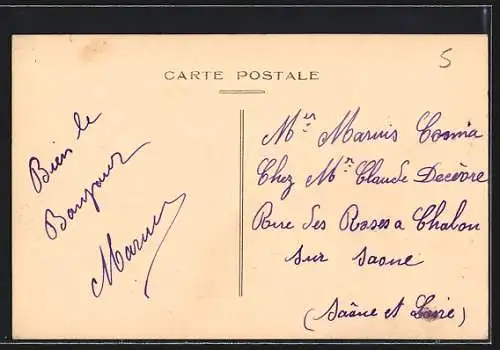 5
CARTE POSTALE
Bien le
Bonjour
Marius
Mr Marius Cosnia
Chez Mr Claude Decèvre
Rue des Roses a Chalon
sur Saone
(Saône et Loire)